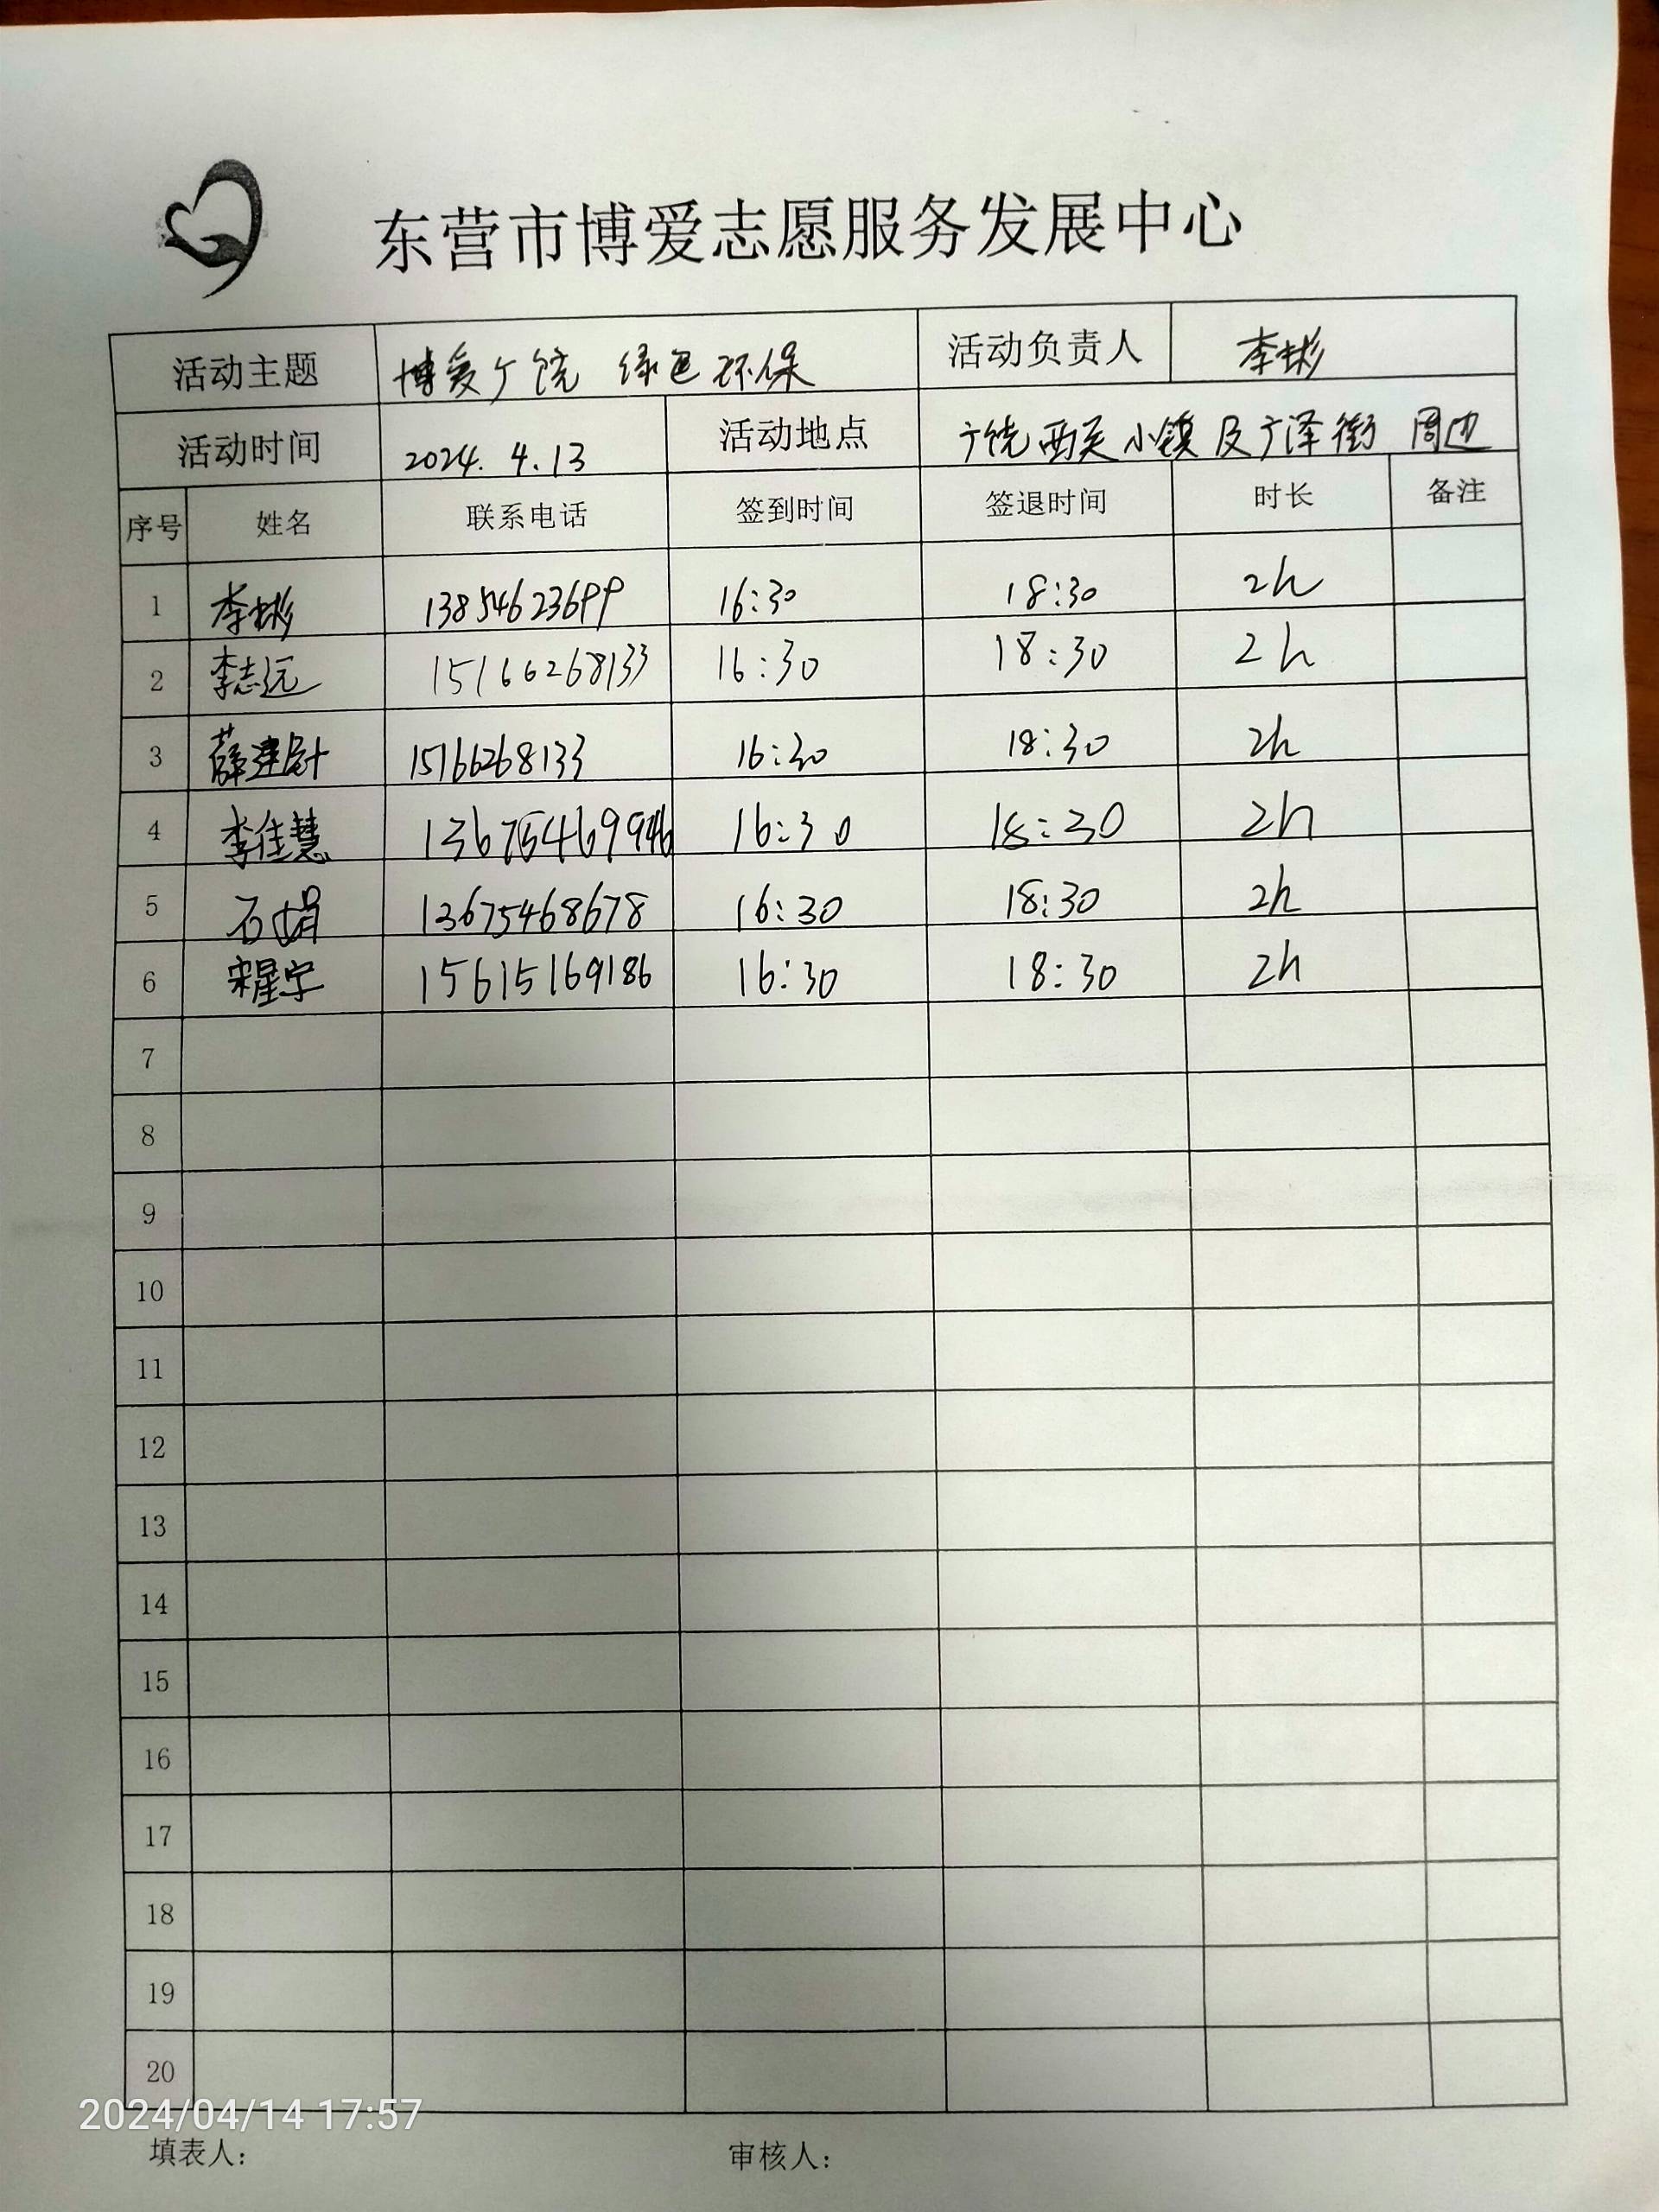 东营市博爱志愿服务发展中心
活动主题 博爱广饶 绿色环保 活动负责人 李彬
活动时间 2024.4.13 活动地点 广饶西关小镇及广泽街 周边
序号 姓名 联系电话 签到时间 签退时间 时长 备注
1 李彬 13854623699 16:30 18:30 2h
2 李志远 15166268133 16:30 18:30 2h
3 薛建 15166268133 16:30 18:30 2h
4 李佳慧 16:30 18:30 2h
5 石娟 13675468678 16:30 18:30 2h
6 宋星宇 15615169186 16:30 18:30 2h
7
8
9
10
11
12
13
14
15
16
17
18
19
20
2024/04/14 17:57
填表人: 审核人: